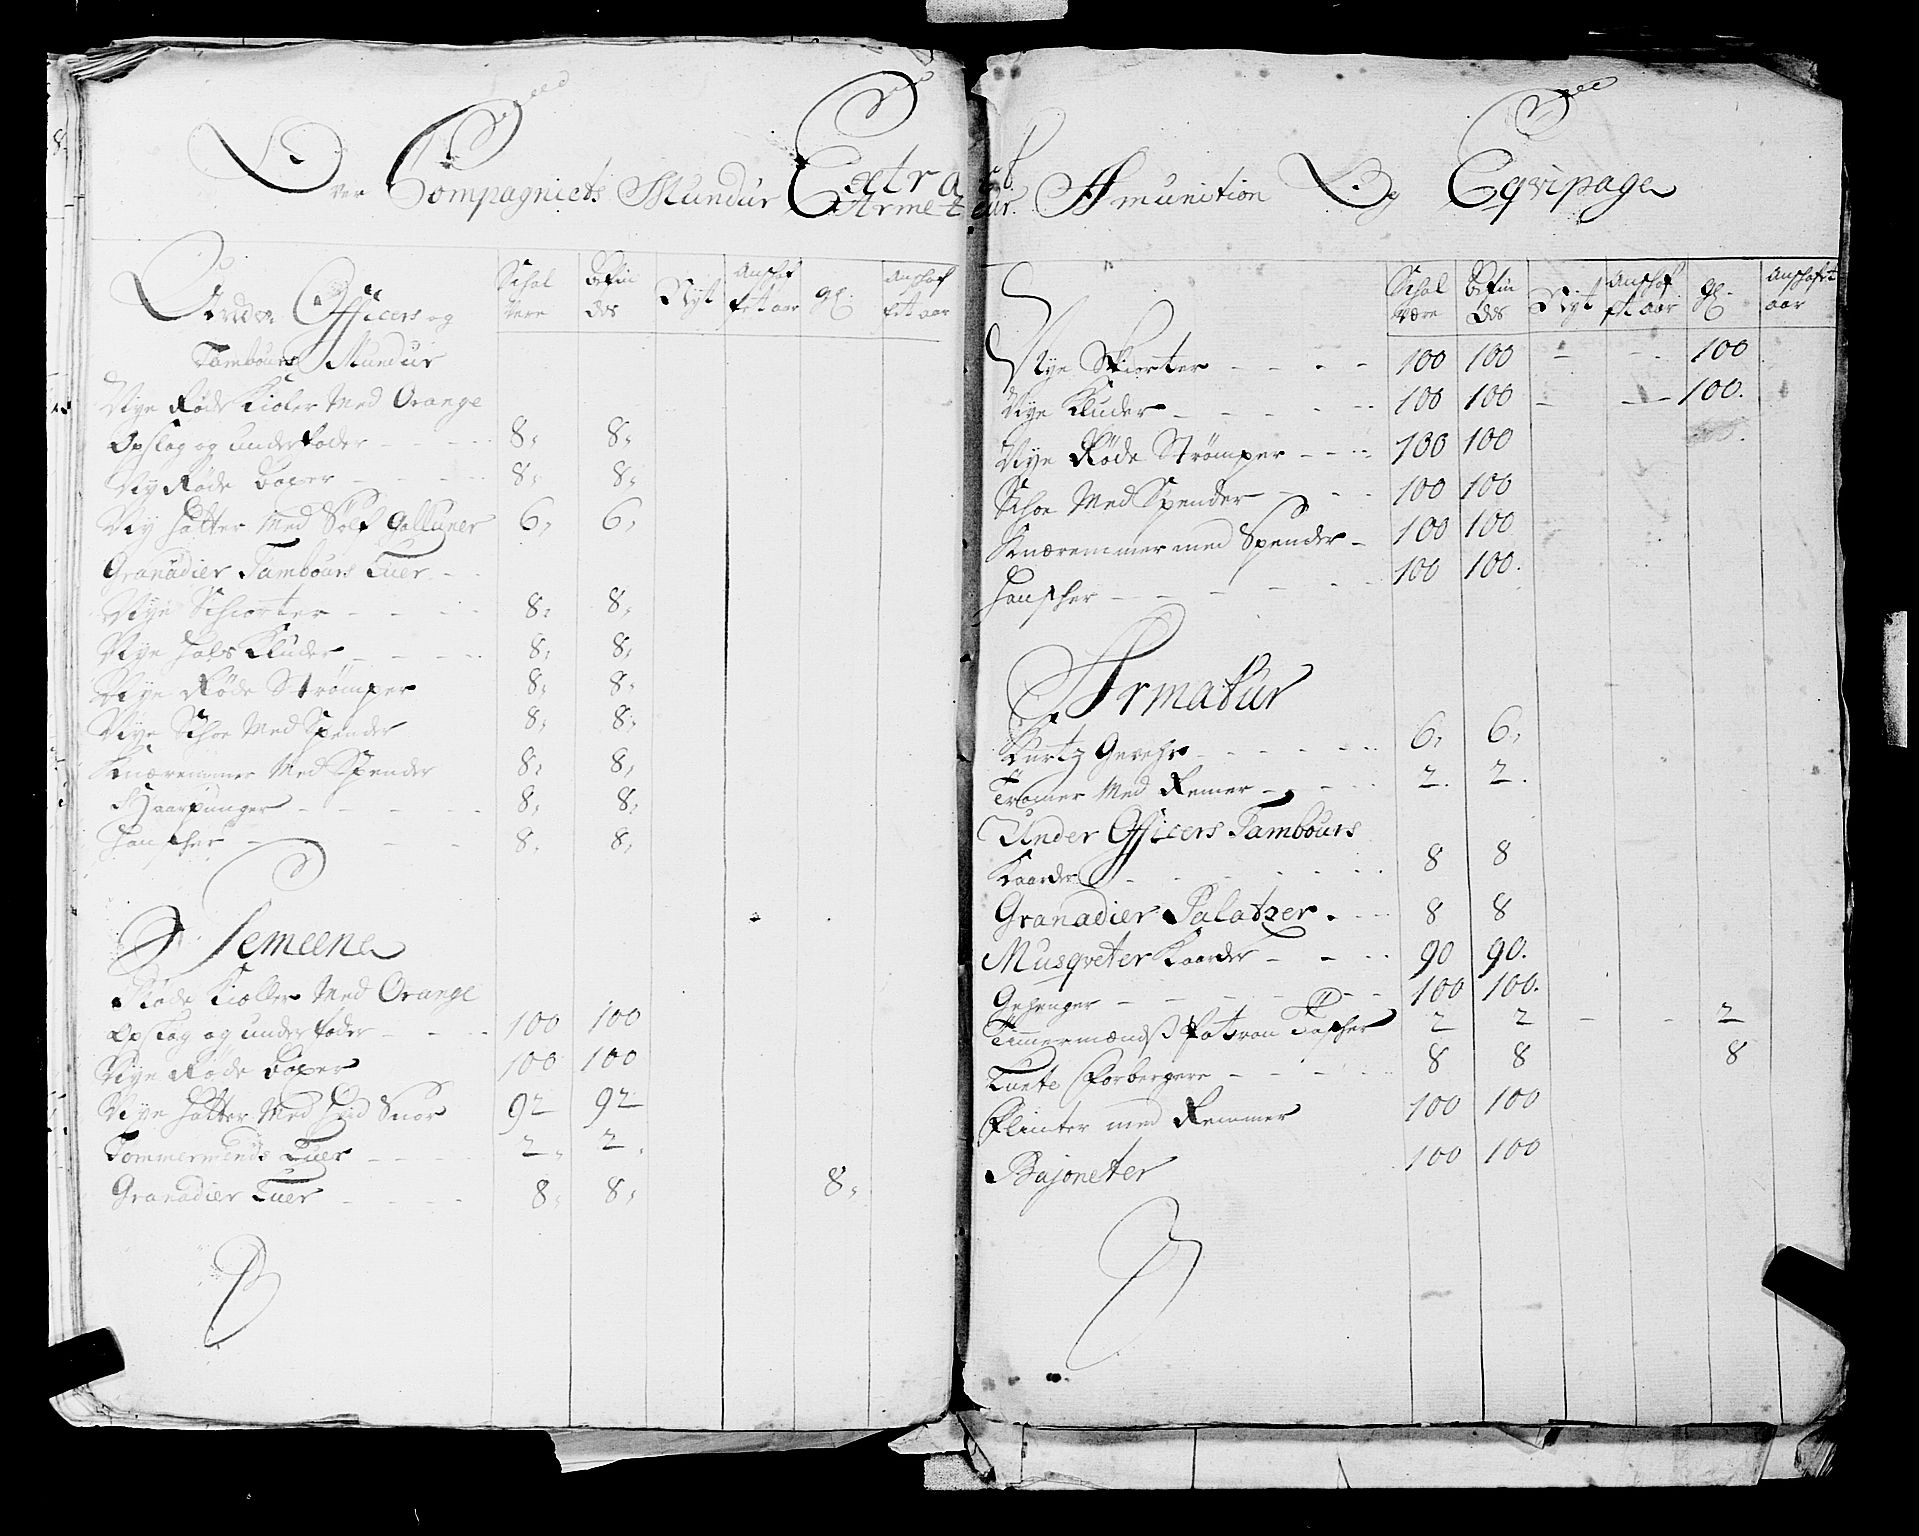 Extract
Over Compagniets Mundur Armetur Amunition Og Eqvipage
Under Officers og
Tambours Mundur
Schal være
Befindes
Nyt
Anschaffet aar
gl.
Anschaffet aar
Nye Røde Kioler Med Orange
Opslag og underfoder - - - 8, 8,
Ny Røde Boxer - - - 8, 8,
Ny Hatter Med Sølf Galluner 6, 6,
Granadier Tambours Luer - -
Nye Schiorter - - - - 8, 8,
Nye Hals Kluder - - - - 8, 8,
Nye Røde Strømper 8, 8,
Nye Schoe Med Spender 8, 8,
Knæremmer Med Spender 8, 8,
Haarpunger - - - - 8, 8,
Hanscher - - - - 8, 8,
Gemeene
Røde Kioller Med Orange
Opslag og underfoder - - - 100 100
Nye Røde Boxer 100 100
Nye Hatter Med Hvid Snor 92 92
Tømmermends Luer - - - - 2, 2,
Granadier Luer - - - - 8, 8, 8,
Schal være
Befindes
Nyt
Anschaffet aar
gl.
Anschafet aar
Nye Skiorter - - - - 100 100 - - - 100
Nye Kluder - - - - - 100 100 - - - 100.
Nye Røde Strømper - - - 100 100
Schoe Med Spender - - - 100 100
Knæremmer med Spender - 100 100
Hanscher - - - - - - 100 100.
Armatur
Kurtz Gevehr - - - - - - 6, 6,
Tromer Med Remer - - - - 2. 2.
Under Officers Tambours
Kaarder - - - - - - 8 8
Granadier Palatzer. - - - 8 8
Musqveter Kaarder - - - - 90 90.
Gehenger - - - - - - - 100 100.
Timermændsz Patron Tascher 2 2 - - 2
Lunte Forbergere - - - - 8 8 8
Flinter med Remmer 100 100
Bajoneter 100 100